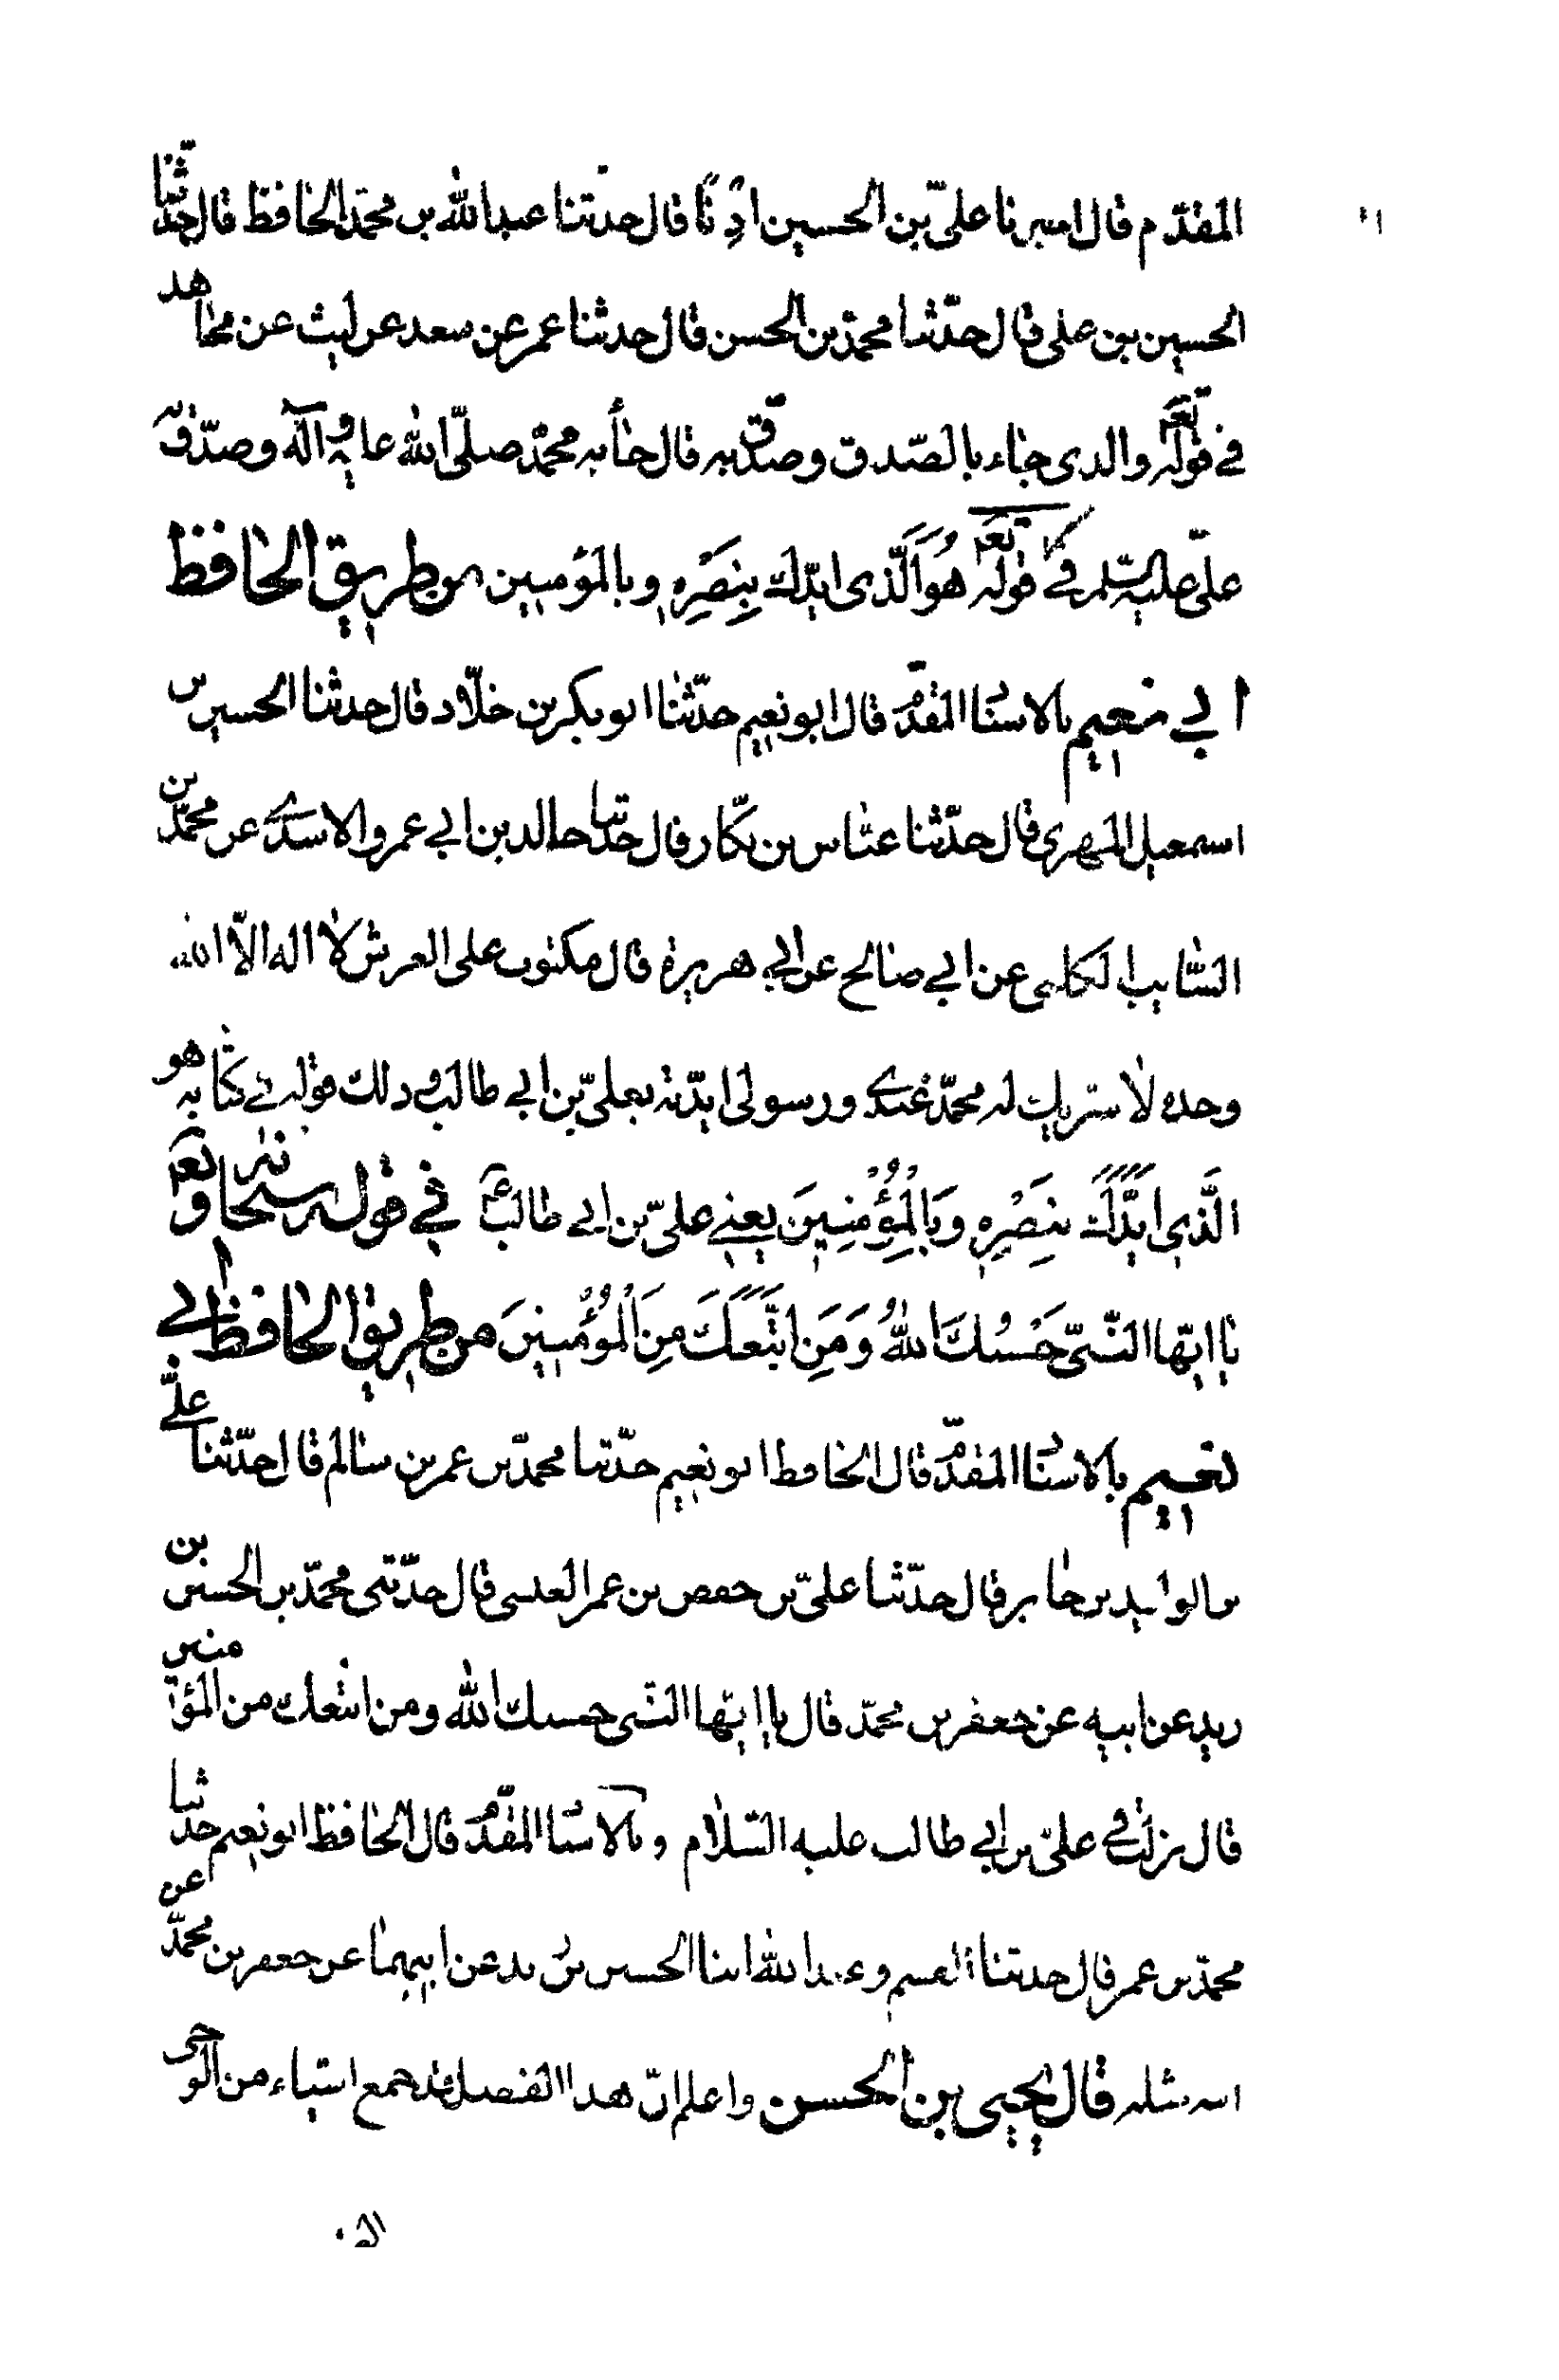 المقدّم قال اخبرنا علىّ بن الحسين اذنًا قال حدثنا عبد الله بن محمّد الحافظ قال حدّثنا
الحسين بن على قال حدّثنا محمّد بن الحسن قال حدثنا عمر عن سعد عن ليث عن مجاهد
في قوله تعم والذى جاء بالصّدق وصدّق به قال جاء به محمّد صلّى الله عليه وآله وصدّق به
علىّ عليه السّلم في قوله تعم هُوَ الَّذى ايّدك بِنَصْرِهِ وبالمؤمنين من طريق الحافظ
ابي نعيم بالاسناد المقدّم قال ابو نعيم حدّثنا ابو بكر بن خلّاد قال حدثنا الحسين بن
اسمعيل المهرى قال حدّثنا عبّاس بن بكّار قال حدثنا خالد بن ابي عمرو الاسدي عن محمّد بن
السّايب الكلبى عن ابي صالح عن ابي هريرة قال مكتوب على العرش لا اله الّا الله
وحده لا شريك له محمّد عبدي ورسولى ايّدته بعلىّ بن ابي طالب وذلك قوله في كتابه هو
الَّذى ايَّدَكَ بِنَصْرِهِ وَبِالْمُؤْمِنِينَ يعني علىّ بن ابي طالب ع في قوله سبحانه وتعم
يا ايّها النّبىّ حَسْبُكَ اللهُ وَمَنِ اتَّبَعَكَ مِنَ الْمُؤْمِنينَ من طريق الحافظ ابي
نعيم بالاسناد المقدّم قال الحافظ ابو نعيم حدّثنا محمّد بن عمر بن سالم قال حدّثنا علىّ
بن الوليد بن جابر قال حدّثنا علىّ بن حفص بن عمر العبسى قال حدّثنى محمّد بن الحسين بن
زيد عن ابيه عن جعفر بن محمّد قال يا ايّها النّبى حسبك الله ومن اتبعك من المؤمنين
قال نزلت في علىّ بن ابي طالب عليه السّلام وبالاسناد المقدّم قال الحافظ ابو نعيم حدثنا
محمّد بن عمر قال حدثنا القسم وعبد الله ابنا الحسين بن زيد عن ابيهما عن جعفر بن محمّد عن
ابيه مثله قال يحيى بن الحسن واعلم انّ هذا الفصل قد جمع اشياء من الوحى